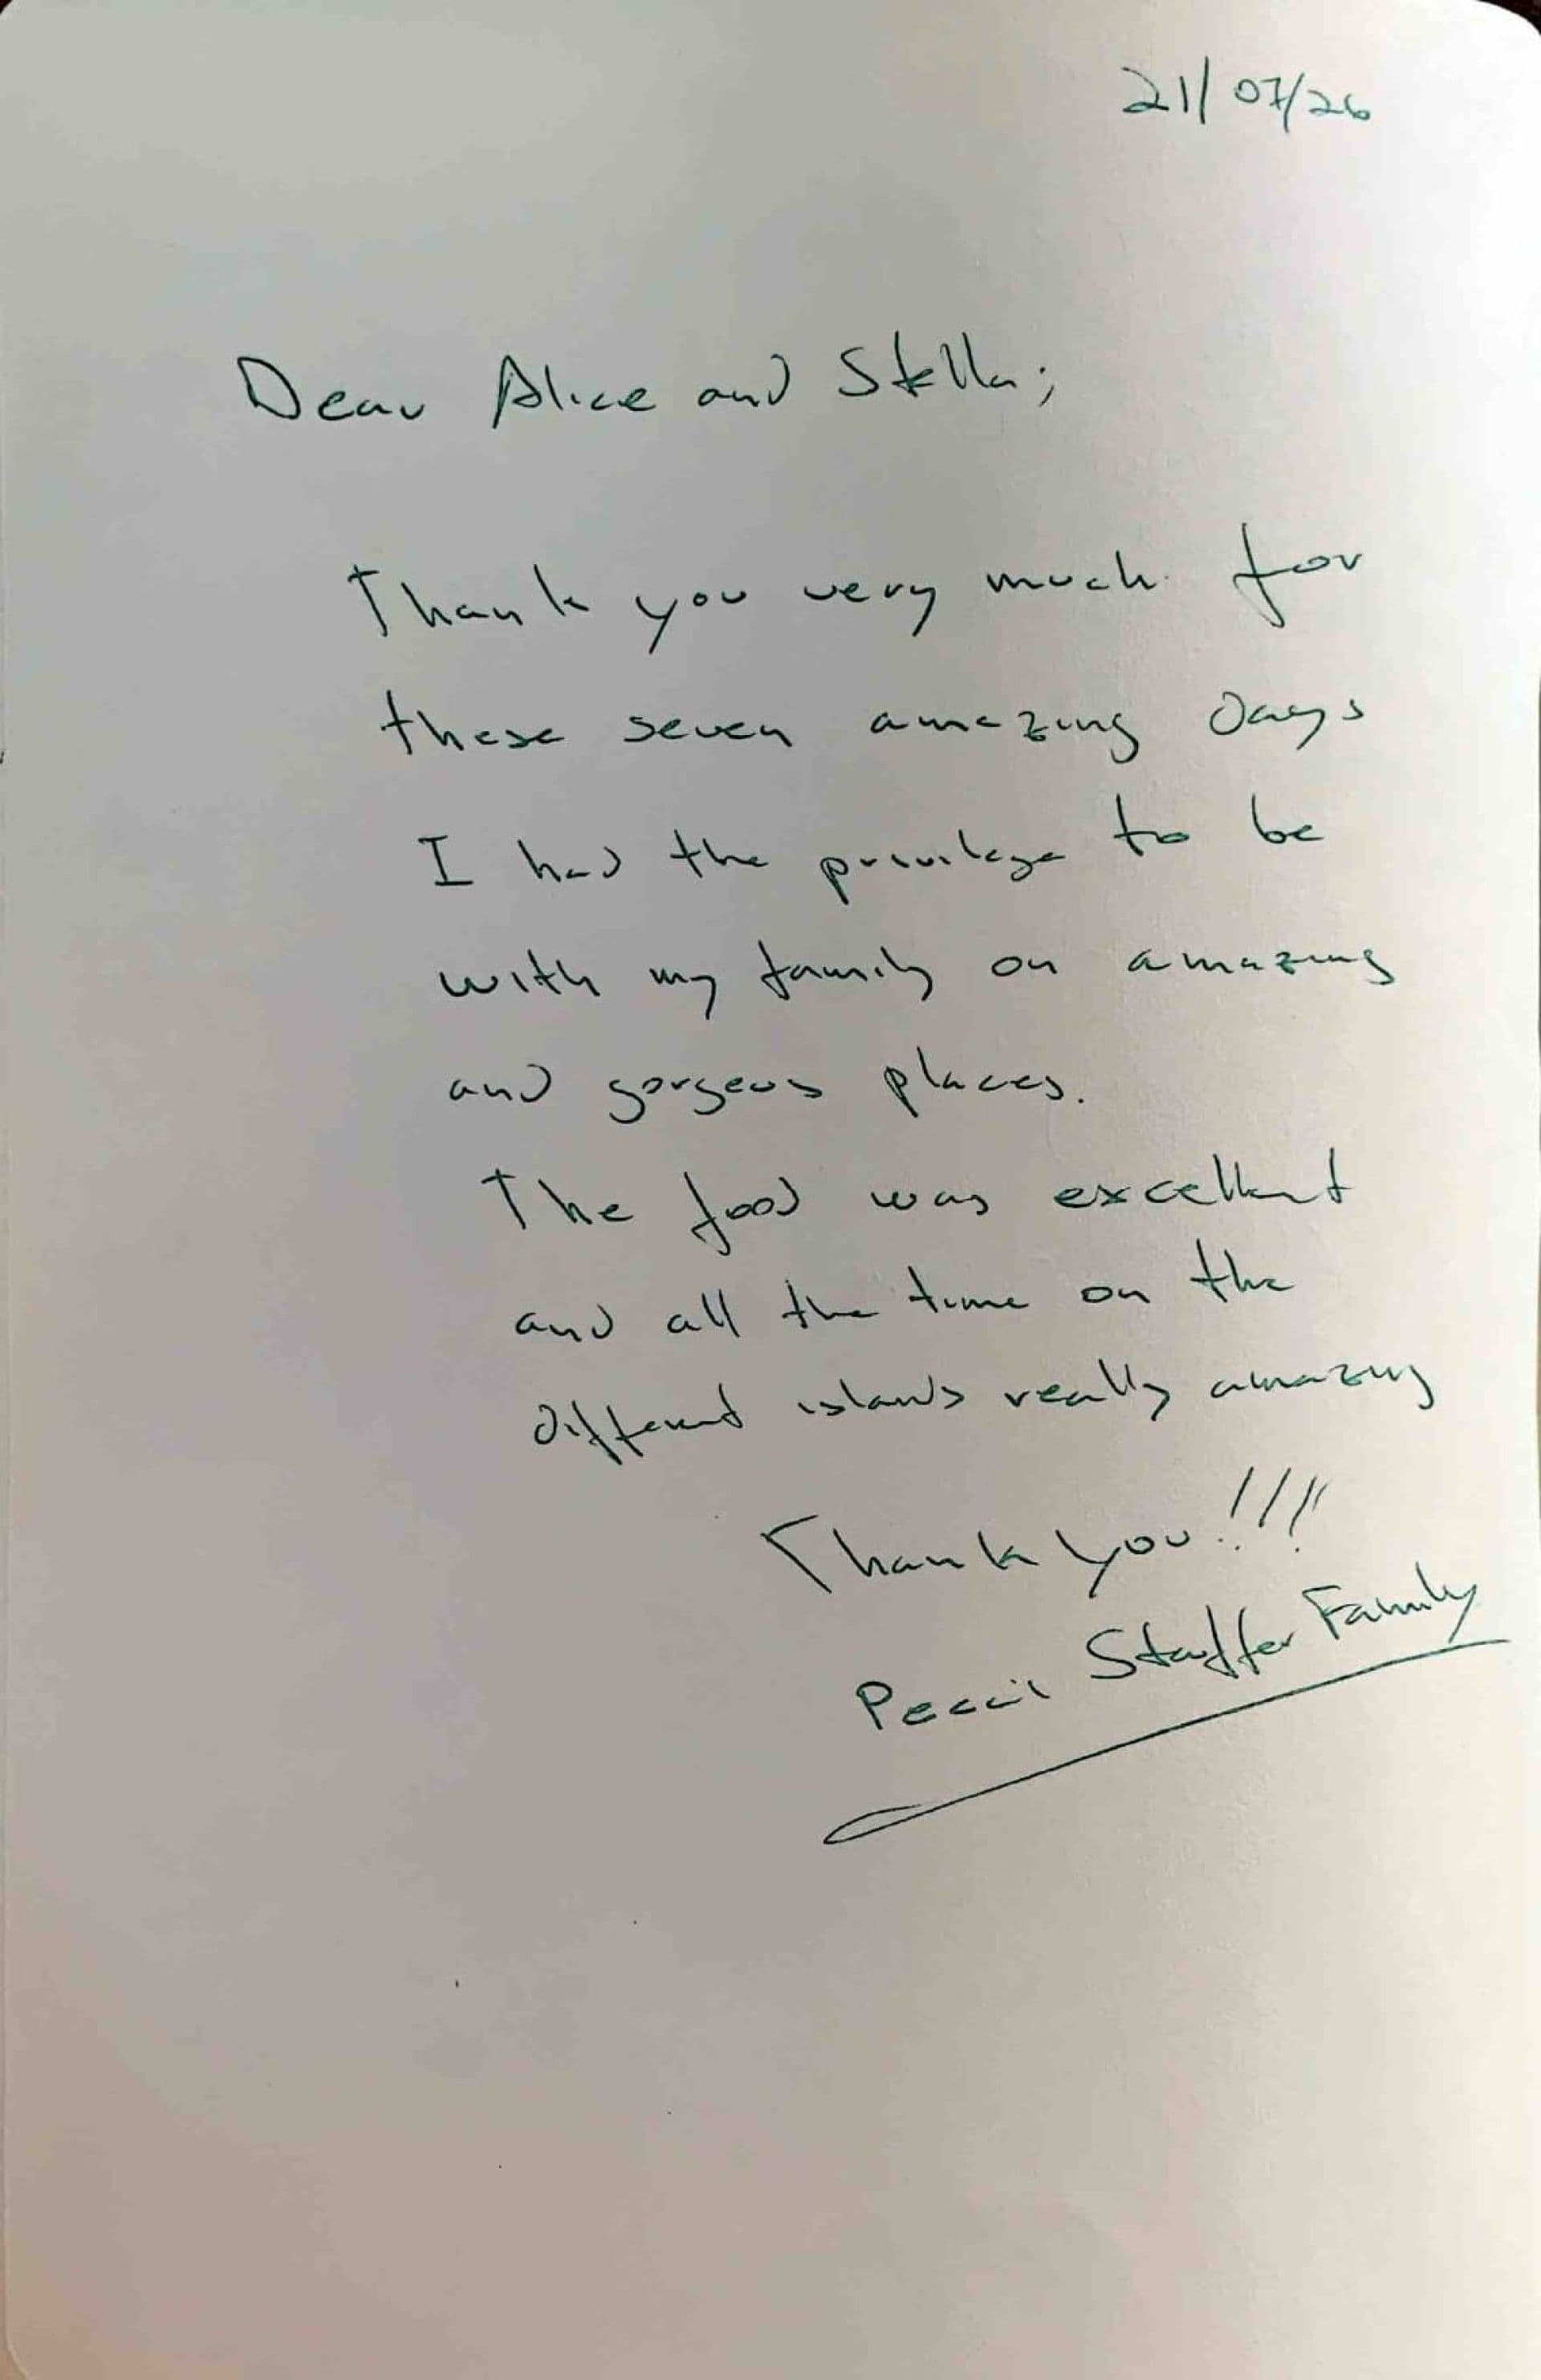 21/07/26
Dear Alice and Stella;
Thank you very much for
these seven amazing days
I had the privilege to be
with my family on amazing
and gorgeous places.
The food was excellent
and all the time on the
different islands really amazing
Thank you!!!!
Stauffer Family